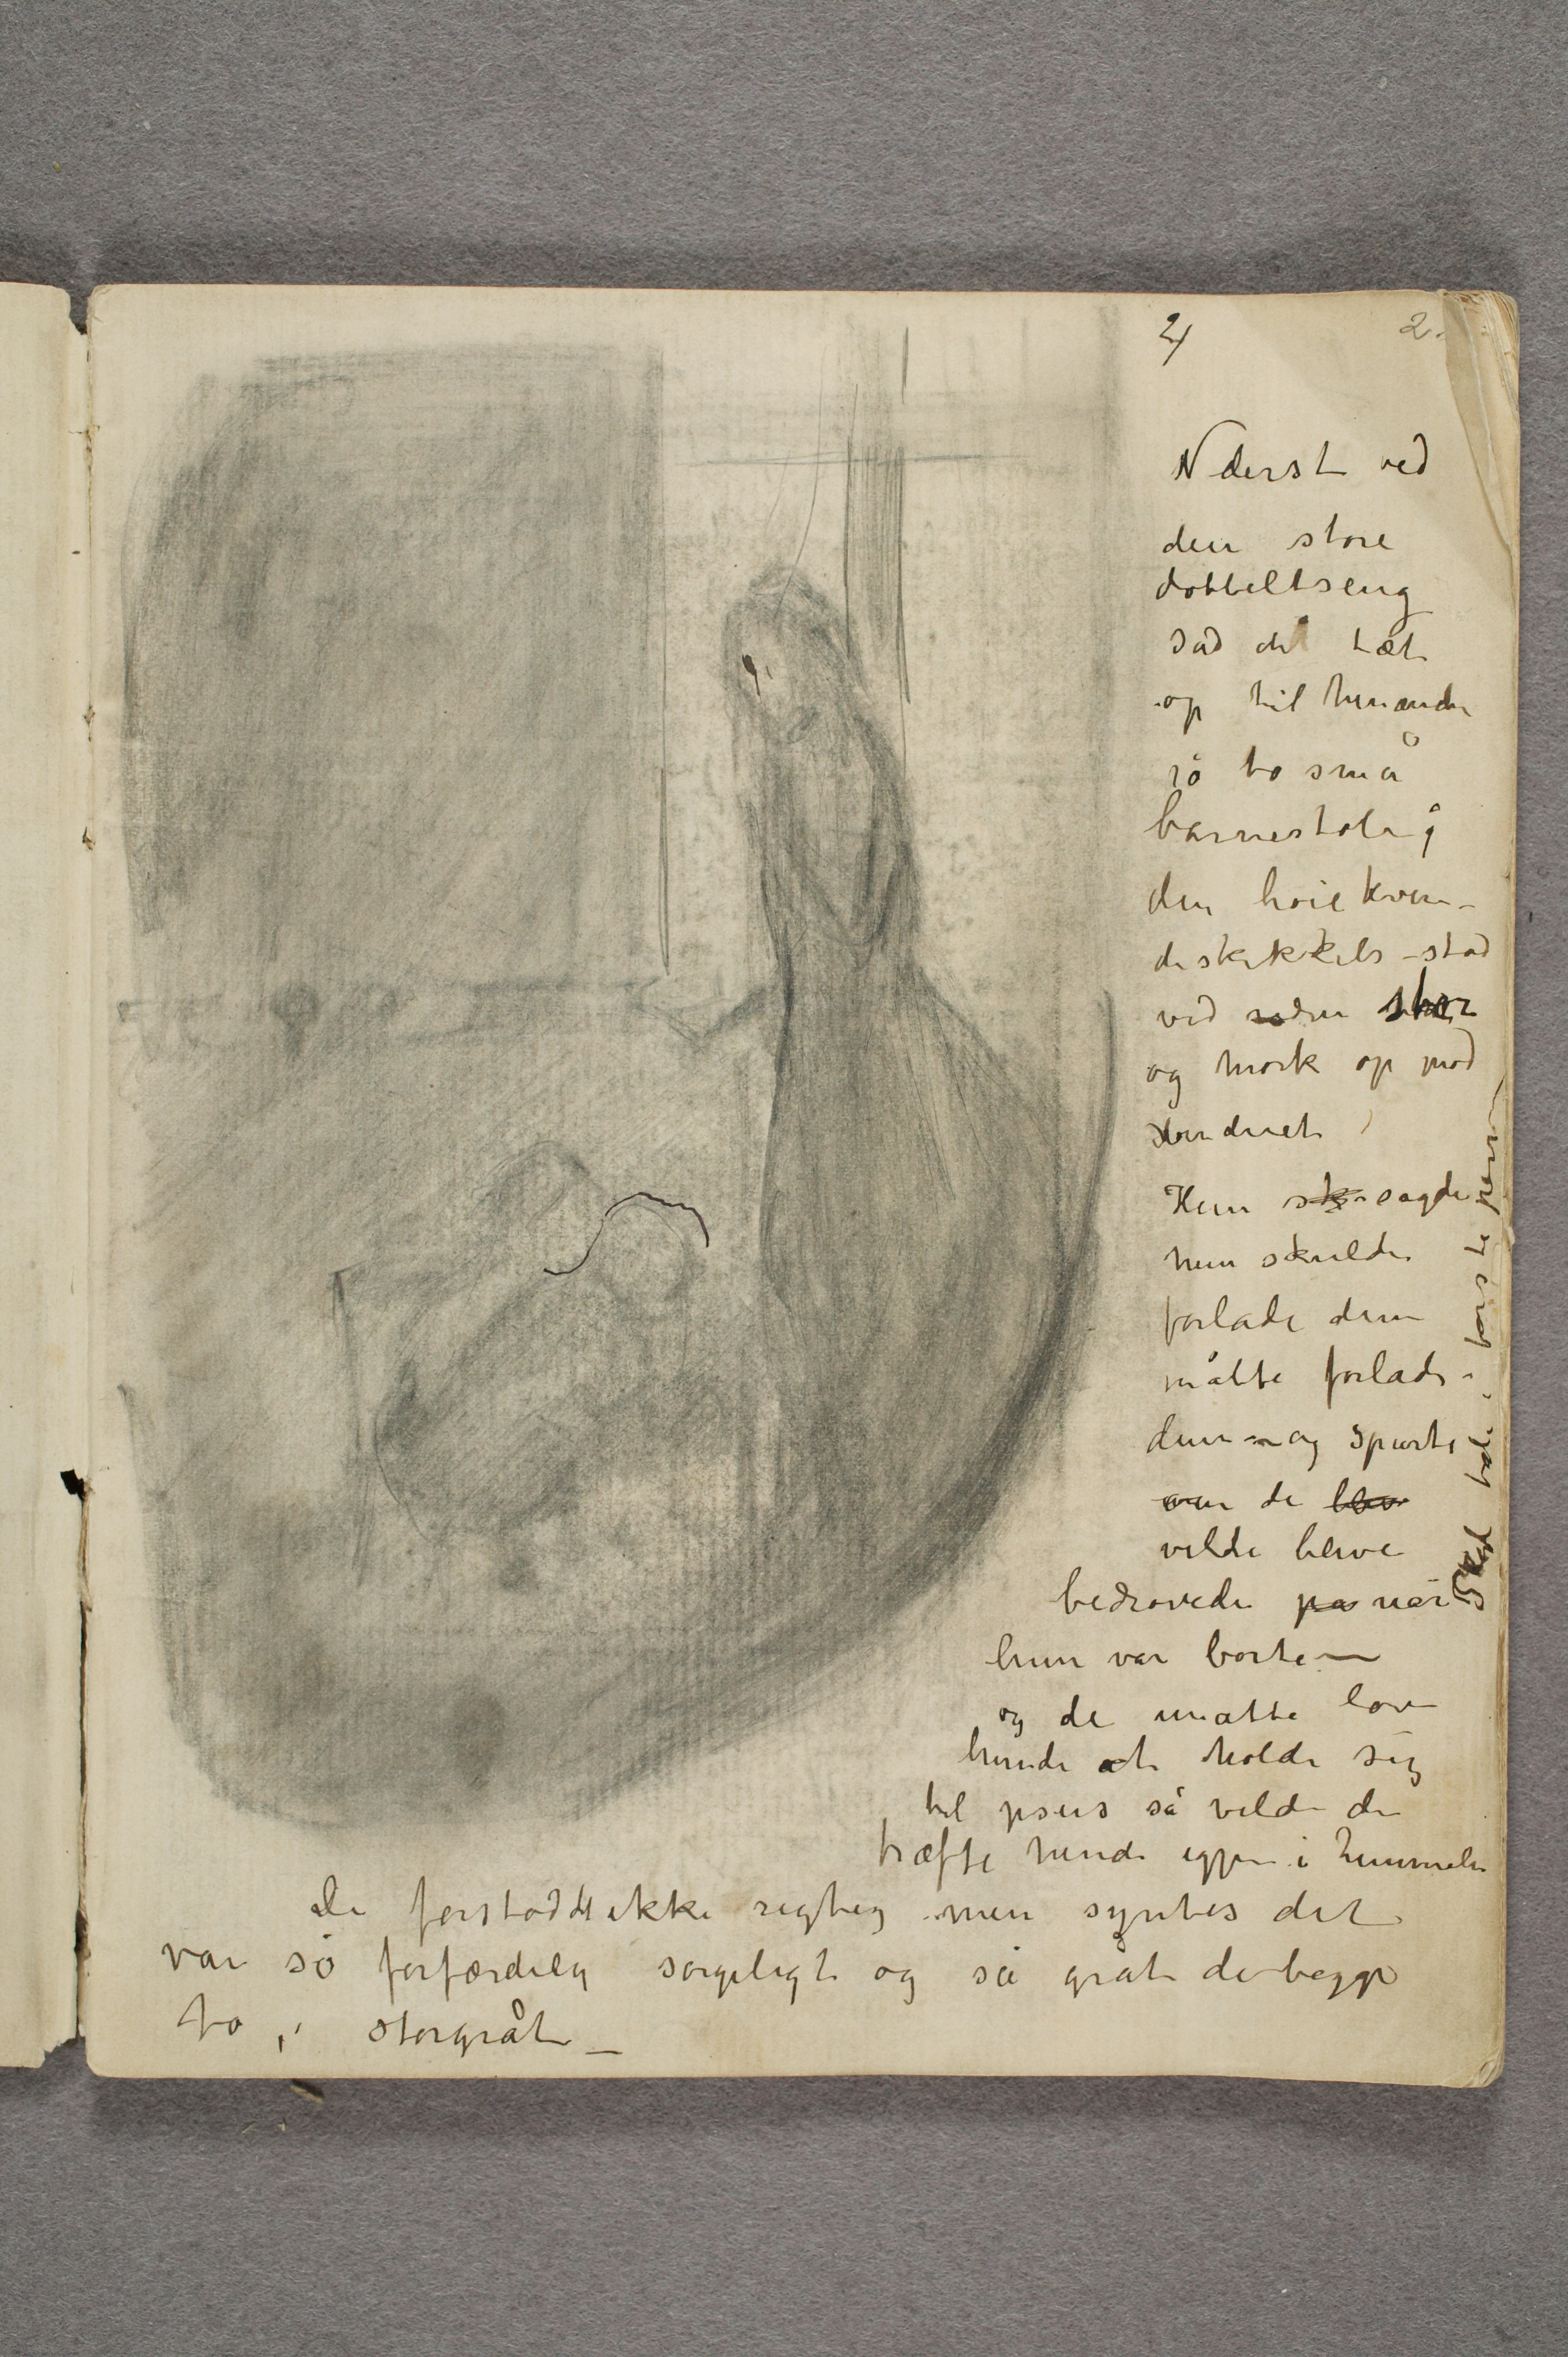 2)
2.
Nderst ved
den store
dobbeltseng
sad de tæt
op til hinanden
på to små
barnestole;
den høie kvin-
deskikkelse stod
ved siden stor
og mørk op mod
vinduet
Hun sk sagde
hun skulde
forlade dem
måtte forlade
dem – og spurte
om de blev
vilde blive
bedrøvede på når
hun var borte –
og de måtte love
hende at holde sig
til Jesus så vilde de
træffe hende igjen i himmelen
De forstod det ikke rigtig men syntes det
var så forfærdelig sørgeligt og så gråt de begge
to i storgråt –